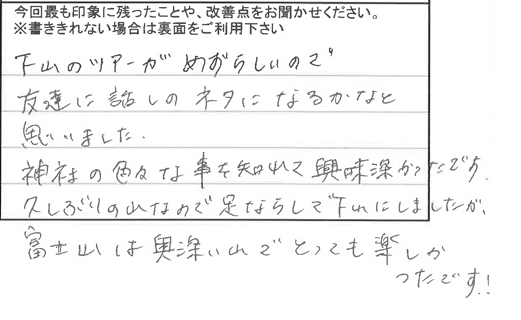 今回最も印象に残ったことや、改善点をお聞かせください。
※書ききれない場合は裏面をご利用下さい
下山のツアーがめずらしいので
友達に話しのネタになるかなと
思いました.
神社の色々な事を知れて興味深かったです.
久しぶりの山なので足ならしで下山にしましたが、
富士山は奥深い山でとっても楽しか
ったです!